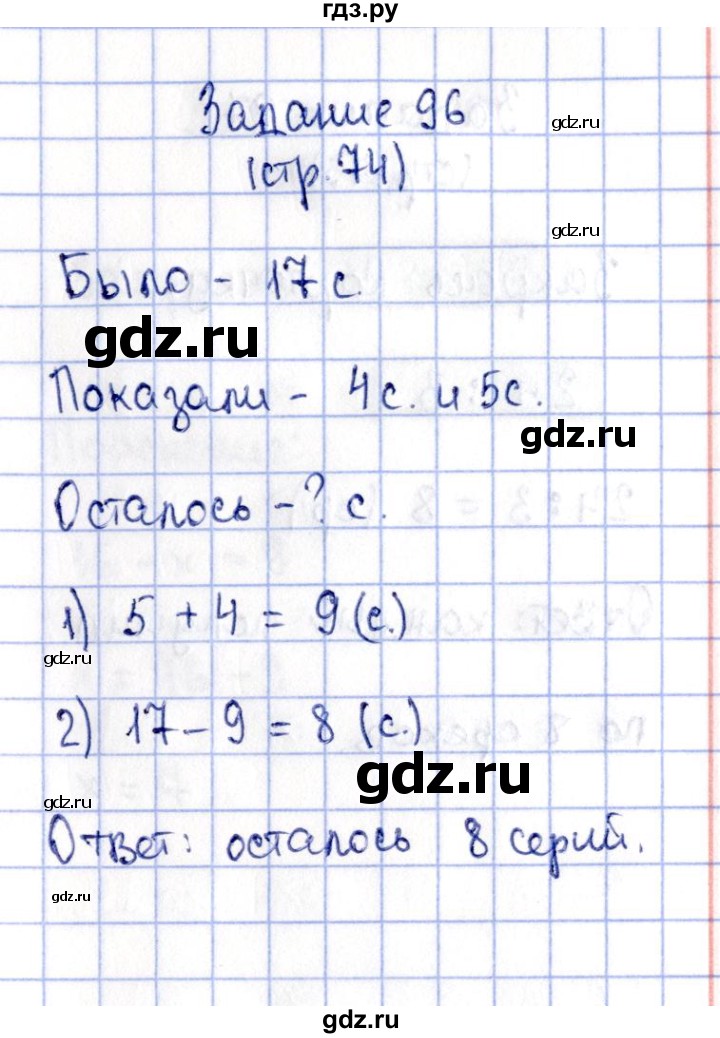 гдз.ру
Задание 96
gdz.ru
(стр. 74)
gdz.ru
Было - 17 с.
gdz.ru
Показали - 4 с. и 5 с.
gdz.ru
Осталось - ? с.
1) 5 + 4 = 9 (с.)
gdz.ru
2) 17 - 9 = 8 (с.)
gdz.ru
gdz.ru
Ответ: осталось 8 серий.
gdz.ru
gdz.ru